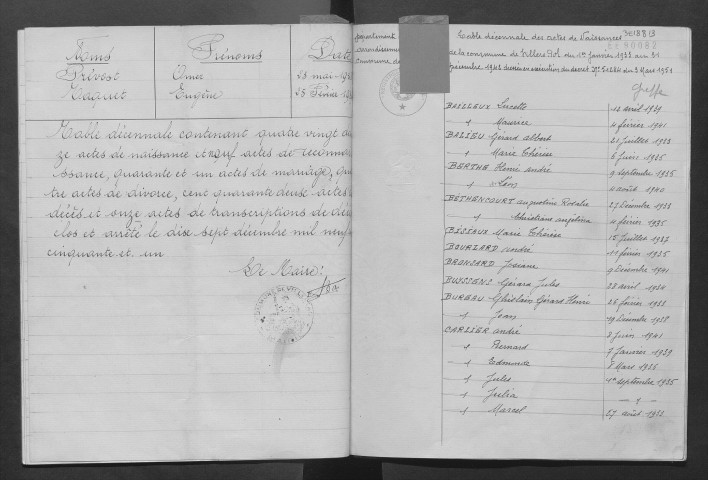 Noms Prénoms Date
Prévost Omer 23 mai 19
Waquet Eugène 25 Février 19
Table décennale contenant quatre vingt
ze actes de naissance et neuf actes de reconn
issance, quarante et un actes de mariage, qua
tre actes de divorce, cent quarante deux actes
décès et onze actes de transcriptions de déc
clos et arrêté le dix sept décembre mil neuf
cinquante et un
Le Maire:
département
arrondissement
commune de
Table décennale des actes de Naissances
de la commune de Villers Pol du 1er Janvier 1933 au 31
Décembre 1942 dressée en exécution du décret N° 51284 du 3 Mars 1951
Greffe
BAILLEUX Lucette 12 avril 1939
" Maurice 4 février 1941
BALIEU Gérard Albert 21 juillet 1933
" Marie Thérèse 6 juin 1935
BERTHE Henri André 9 septembre 1935
" Léon 11 août 1940
BETHENCOURT Augustine Rosalie 27 Décembre 1933
" Christiane Angélina 11 février 1935
Marie Thérèse 15 juillet 1937
André 11 février 1935
BRONSARD Josiane 9 Décembre 1941
BUISSENS Gérard Jules 23 avril 1934
BUREAU Ghislain Gérard Henri 26 février 1933
" Jean 19 Décembre 1938
CARLIER André 2 juin 1941
" Bernard 7 Janvier 1939
" Edmonde 8 Mars 1936
" Jules 1er septembre 1935
" Julia — " —
" Marcel 27 août 1933